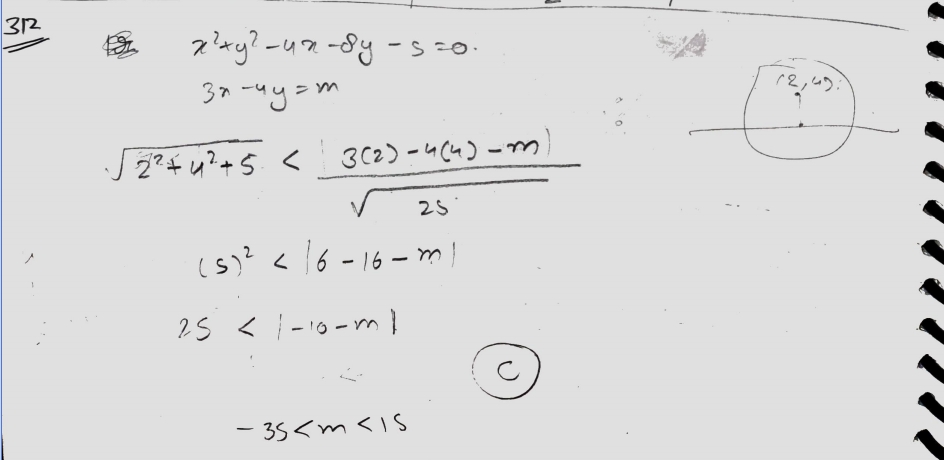 312
x²+y²-4x-8y-5=0.
3x-4y=m
(2,4)
√2²+4²+5 < |3(2)-4(4)-m| / √25
(5)² < |6-16-m|
25 < |-10-m|
C
-35<m<15